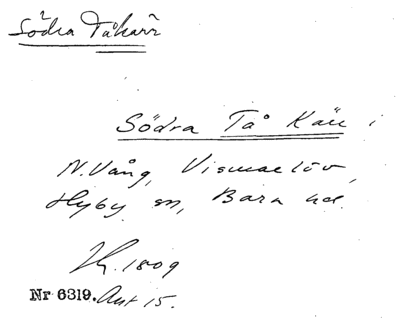 Södra Tåkärr
Södra Tå Kärr i
N. Vång, Vismarlöv,
Hyby sn, Bara hd.
Hy. 1809
Nr 6319. Akt 15.